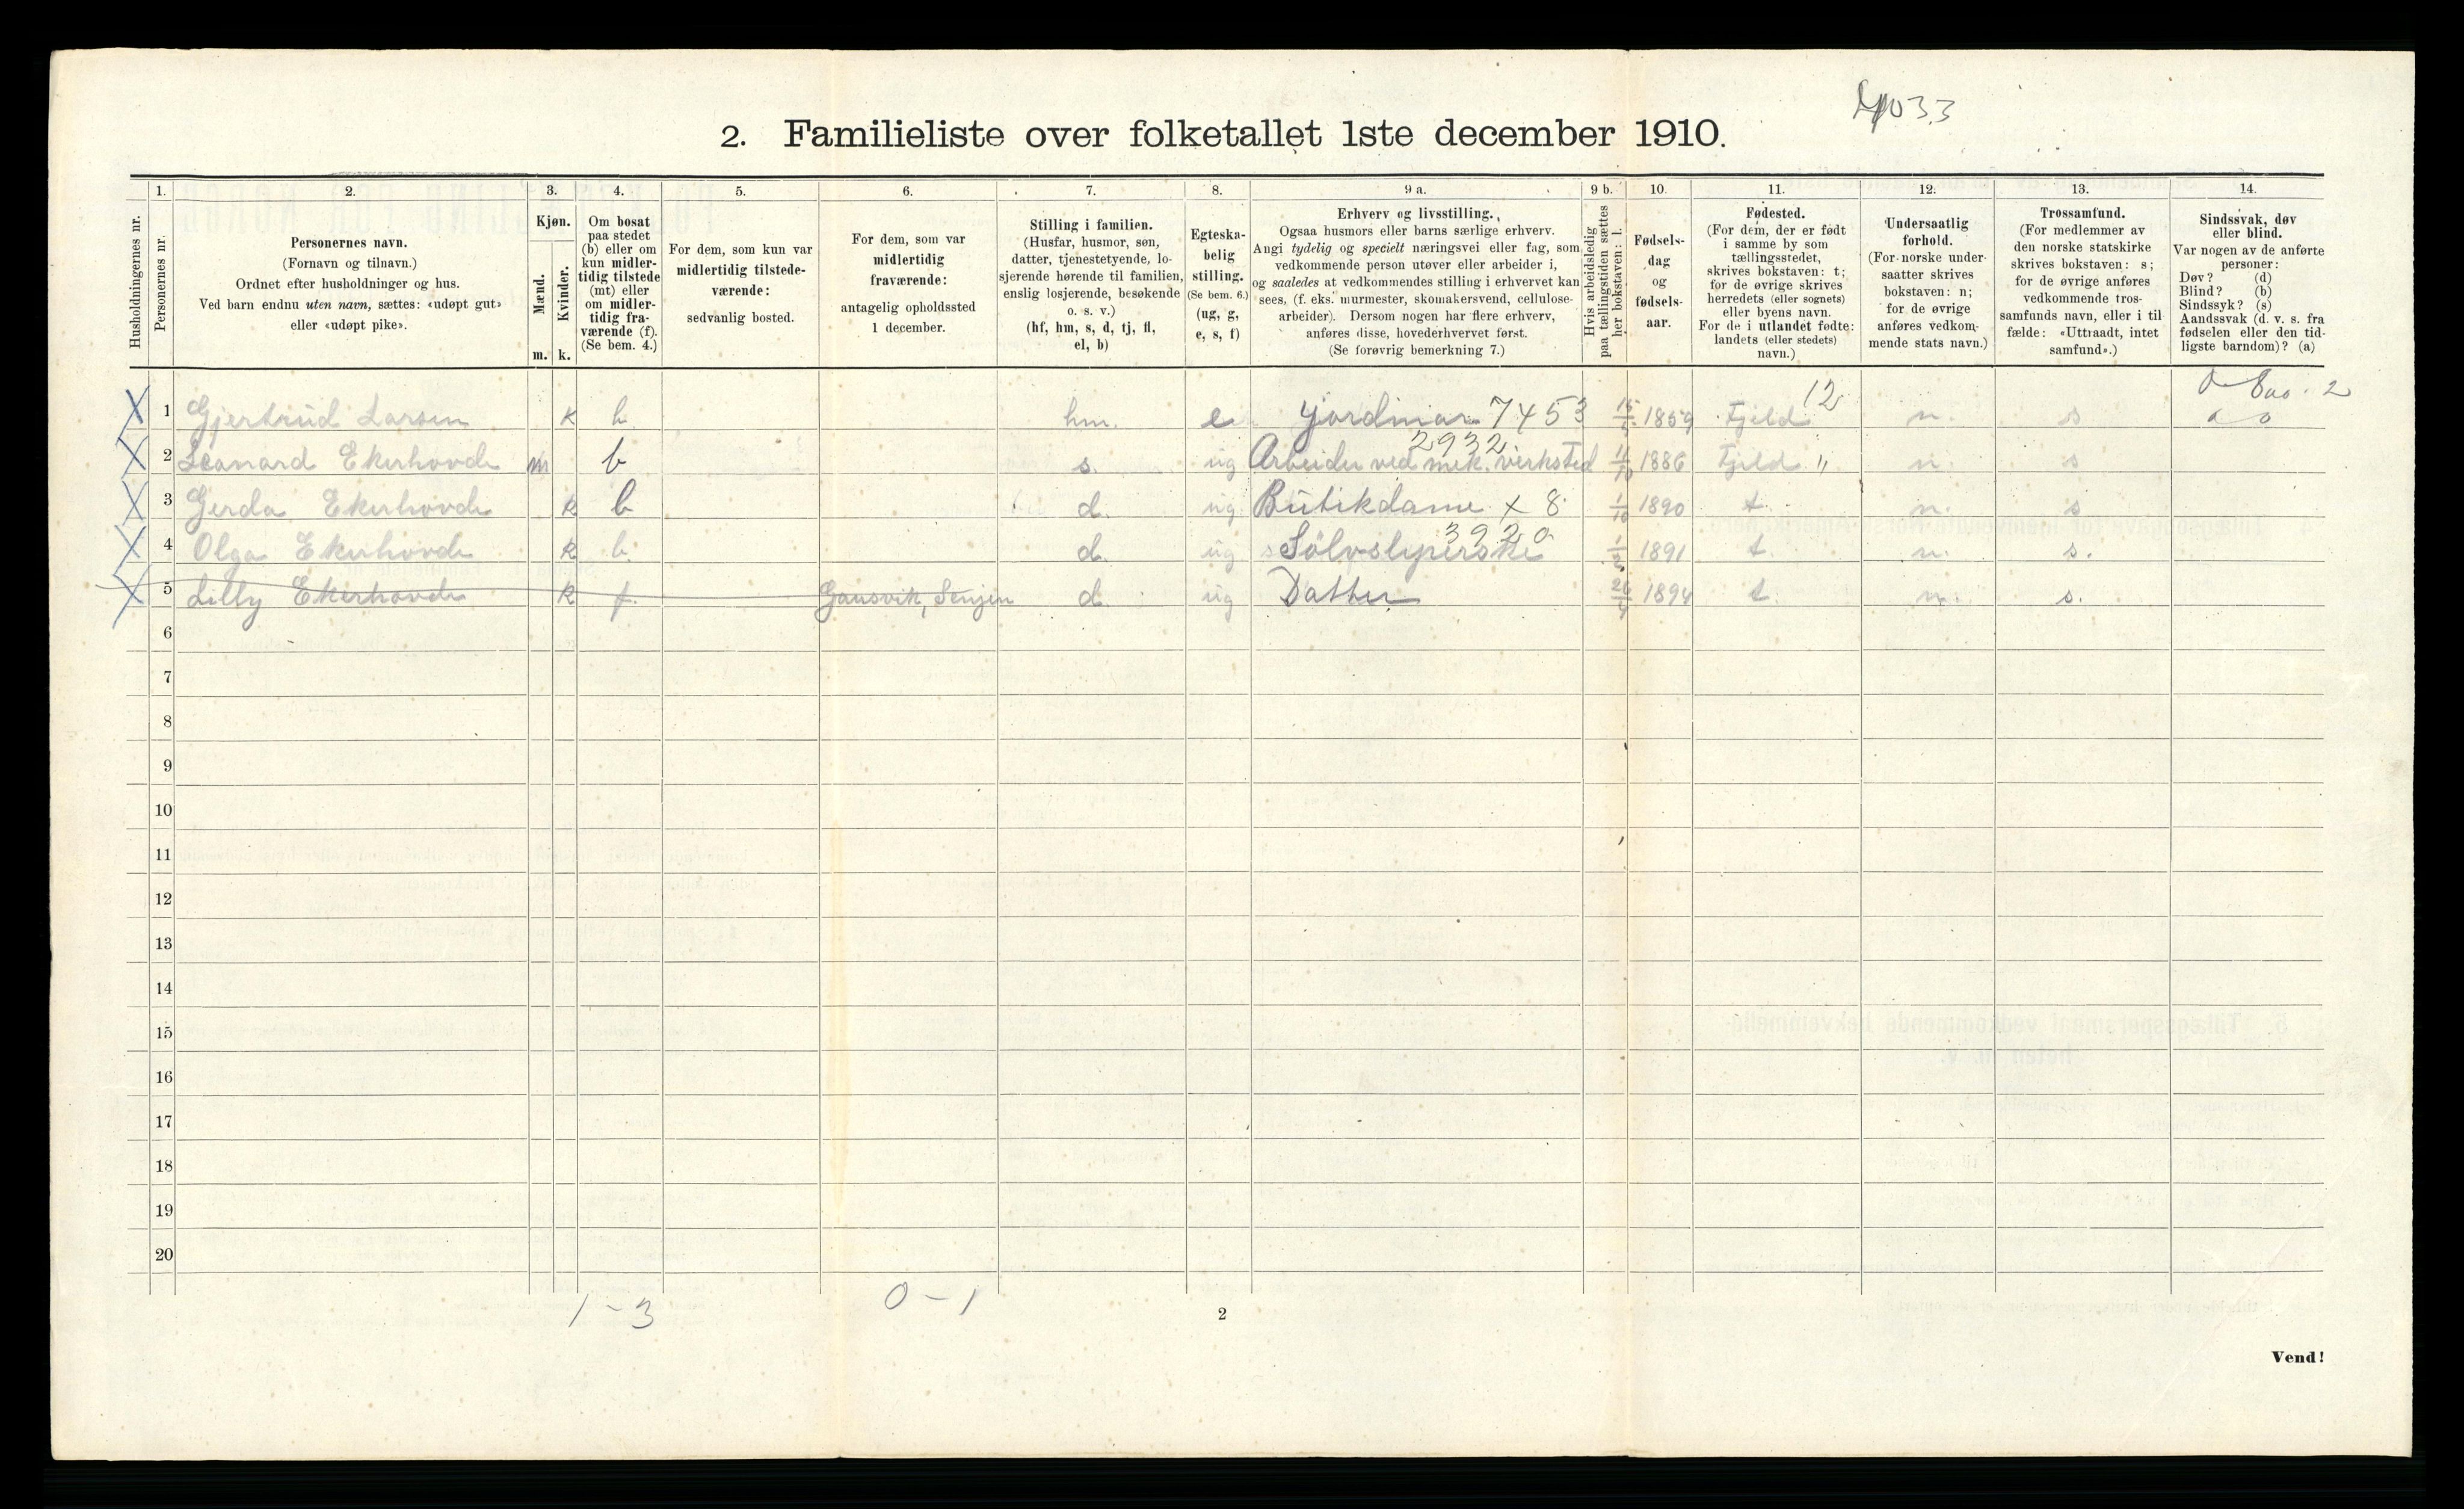 4033
2. Familieliste over folketallet 1ste december 1910.
Husholdningernes nr.
1. Personernes nr.
2. Personernes navn. (Fornavn og tilnavn.) Ordnet efter husholdninger og hus. Ved barn endnu uten navn, sættes: «udøpt gut» eller «udøpt pike».
3. Kjøn. Mænd. m. Kvinder. k.
4. Om bosat paa stedet (b) eller om kun midlertidig tilstede (mt) eller om midlertidig fraværende (f). (Se bem. 4.)
5. For dem, som kun var midlertidig tilstedeværende: sedvanlig bosted.
6. For dem, som var midlertidig fraværende: antagelig opholdssted 1 december.
7. Stilling i familien. (Husfar, husmor, søn, datter, tjenestetyende, losjerende hørende til familien, enslig losjerende, besøkende o. s. v.) (hf, hm, s, d, tj, fl, el, b)
8. Egteskabelig stilling. (Se bem. 6.) (ug, g, e, s, f)
9 a. Erhverv og livsstilling. Ogsaa husmors eller barns særlige erhverv. Angi tydelig og specielt næringsvei eller fag, som vedkommende person utøver eller arbeider i, og saaledes at vedkommendes stilling i erhvervet kan sees, (f. eks. murmester, skomakersvend, cellulosearbeider). Dersom nogen har flere erhverv, anføres disse, hovederhvervet først. (Se forøvrig bemerkning 7.)
9 b. Hvis arbeidsledig paa tællingstiden sættes her bokstaven: l.
10. Fødselsdag og fødselsaar.
11. Fødested. (For dem, der er født i samme by som tællingsstedet, skrives bokstaven: t; for de øvrige skrives herredets (eller sognets) eller byens navn. For de i utlandet fødte: landets (eller stedets) navn.)
12. Undersaatlig forhold. (For norske undersaatter skrives bokstaven: n; for de øvrige anføres vedkommende stats navn.)
13. Trossamfund. (For medlemmer av den norske statskirke skrives bokstaven: s; for de øvrige anføres vedkommende trossamfunds navn, eller i tilfælde: «Uttraadt, intet samfund».)
14. Sindssvak, døv eller blind. Var nogen av de anførte personer: Døv? (d) Blind? (b) Sindssyk? (s) Aandssvak (d. v. s. fra fødselen eller den tidligste barndom)? (a)
X 1 Gjertrud Larsen k b hm. e Jordmor 7453 15/5 1859 Fjeld 12 n. s
X 2 Leonard Ekerhovde m b s. ug Arbeider ved mek. verksted 2932 11/10 1886 Fjeld " n. s
X 3 Gerda Ekerhovde k b d. ug Butikdame x 8 1/10 1890 t. n. s
X 4 Olga Ekerhovde k b. d. ug Sölvsliperske 3920 1891 t. n. s.
X 5 Lilly Ekerhovde k f. Gausvik, Senjen d. ug Datter 1894 t. n. s.
6
7
8
9
10
11
12
13
14
15
16
17
18
19
20
1 - 3
0 - 1
2
Vend!